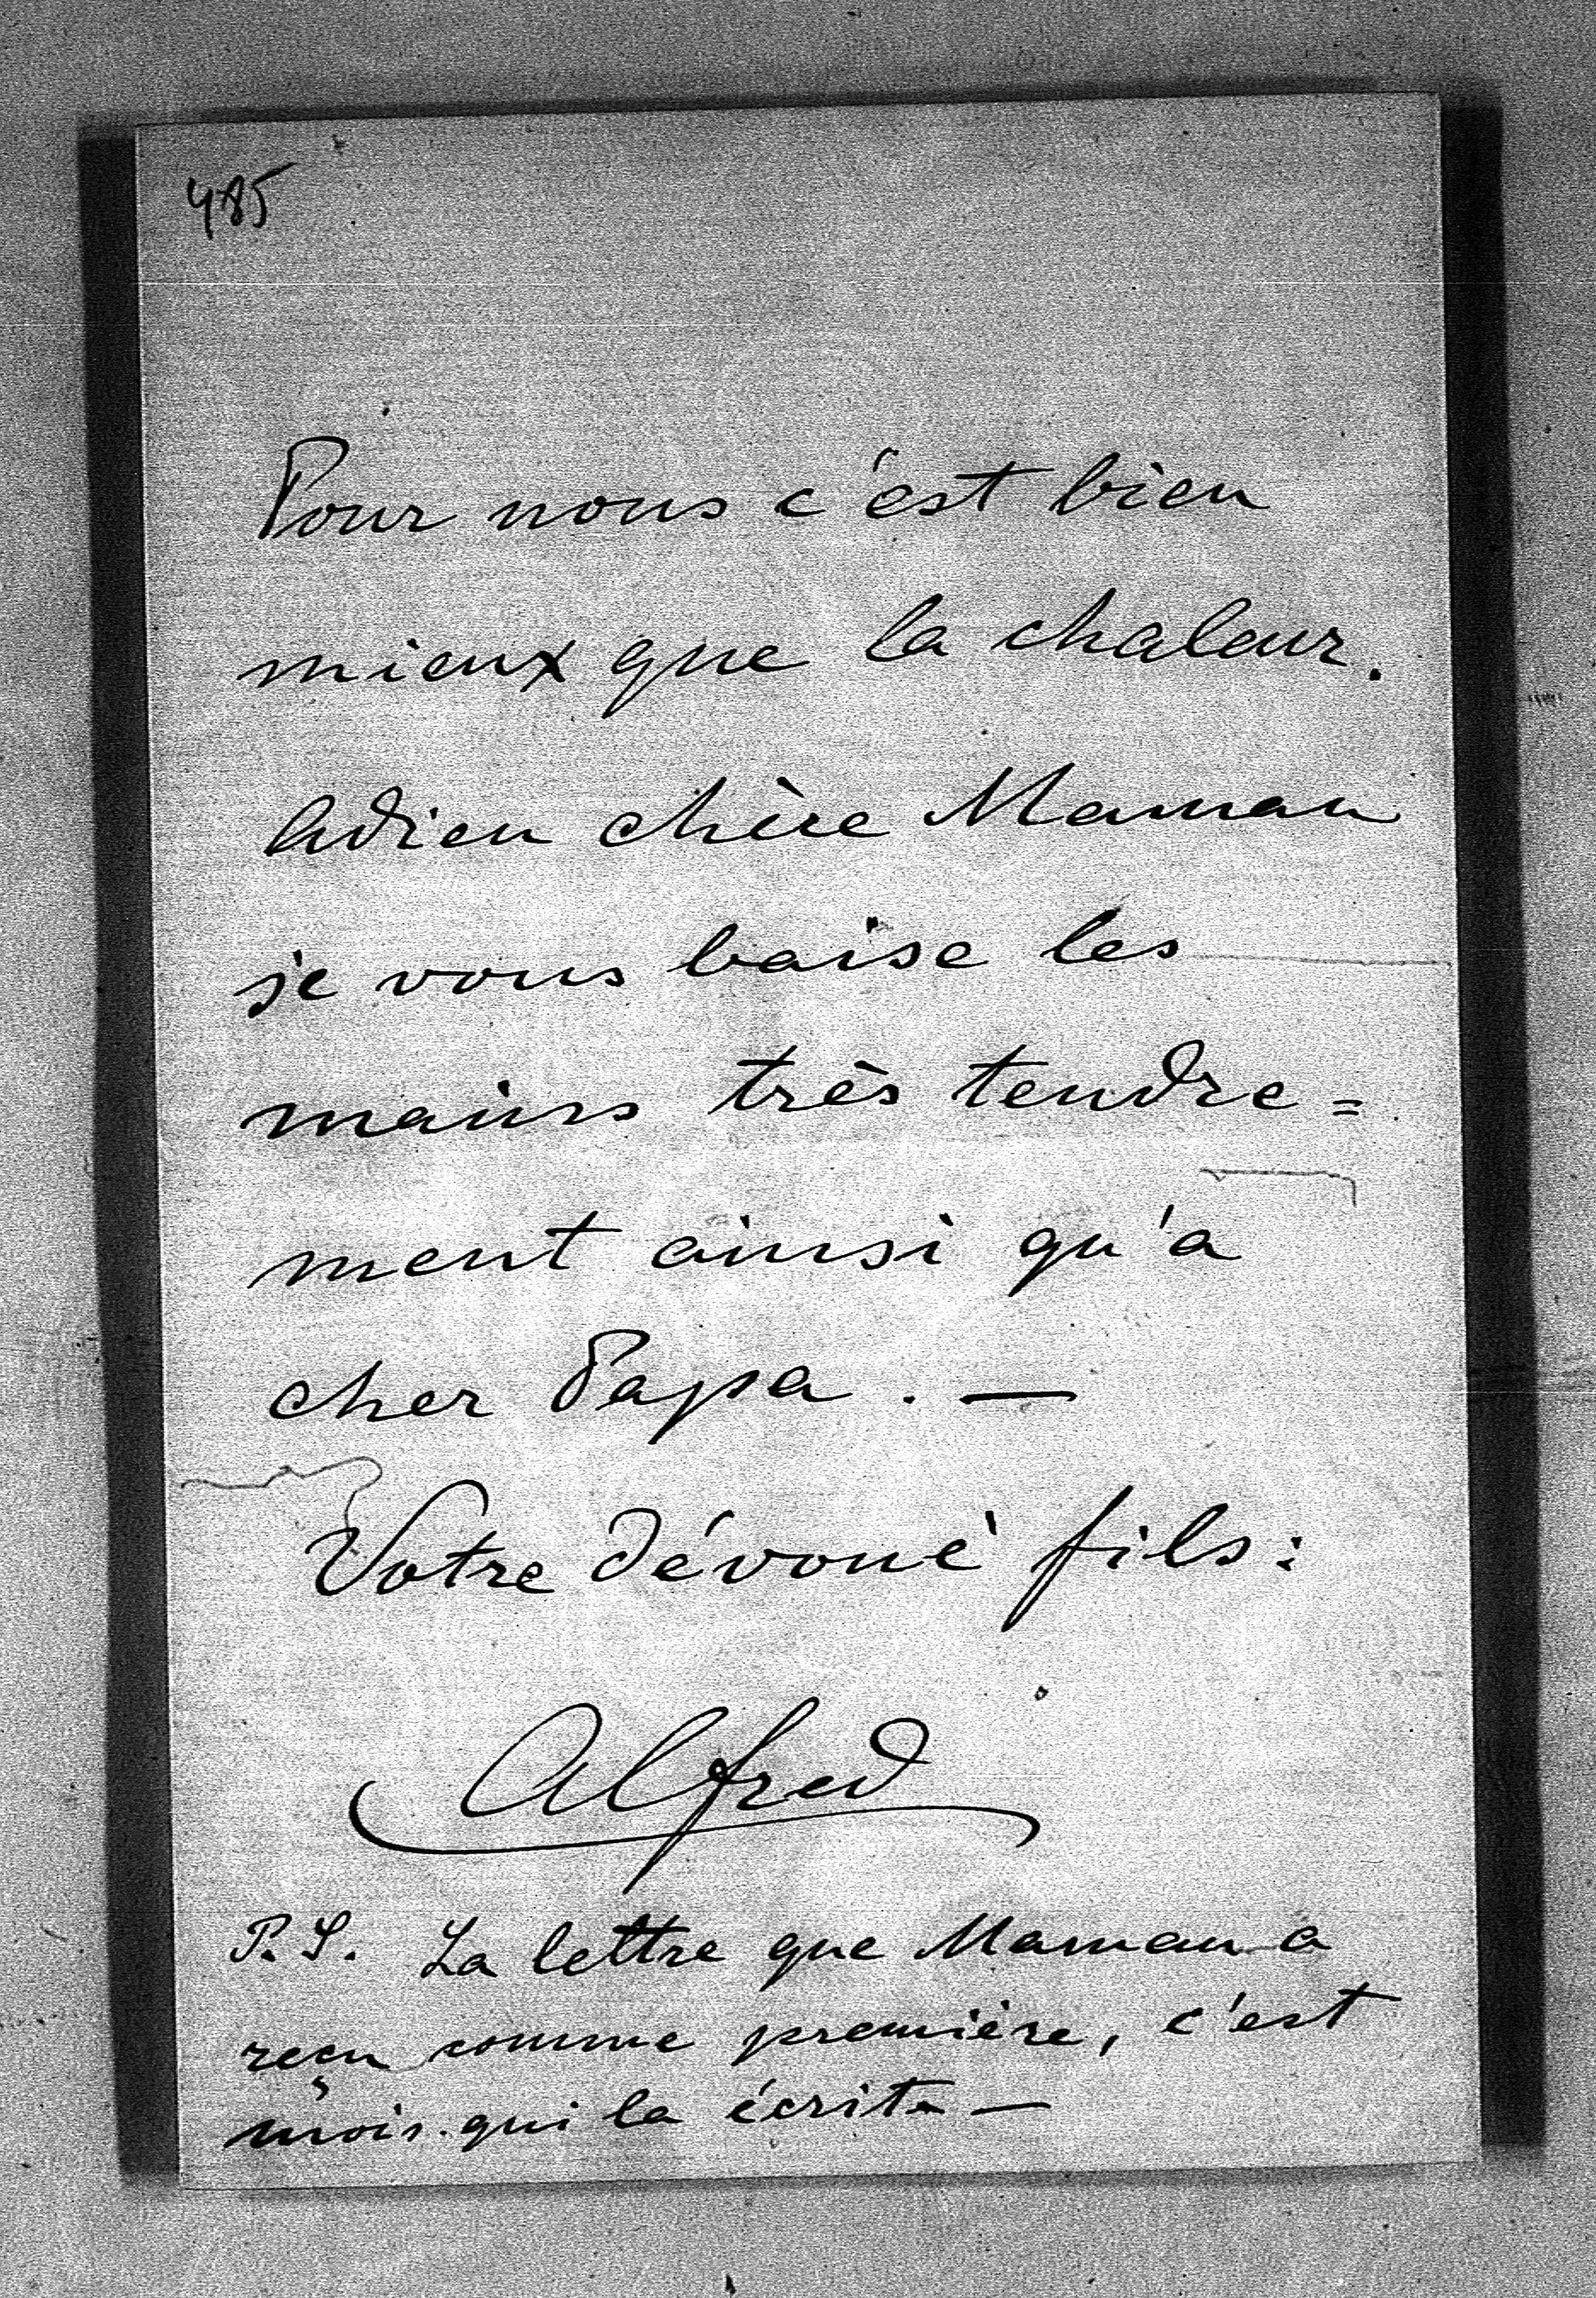 485
Pour nous c'est bien
mieux que la chaleur.
Adieu chère Maman
je vous baise les
mains très tendre=
ment ainsi qu'a
cher Papa. —
Votre dévoué fils:
Alfred
P.S. La lettre que Maman a
reçu comme première, c'est
mois qui la écrit. —